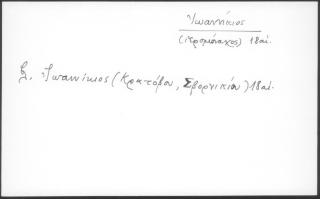 Ἰωαννίκιος
(ἱερομόναχος) 18 αἰ.
Ἰωαννίκιος (Κρατόβου, Σβορνικίου) 18 αἰ.